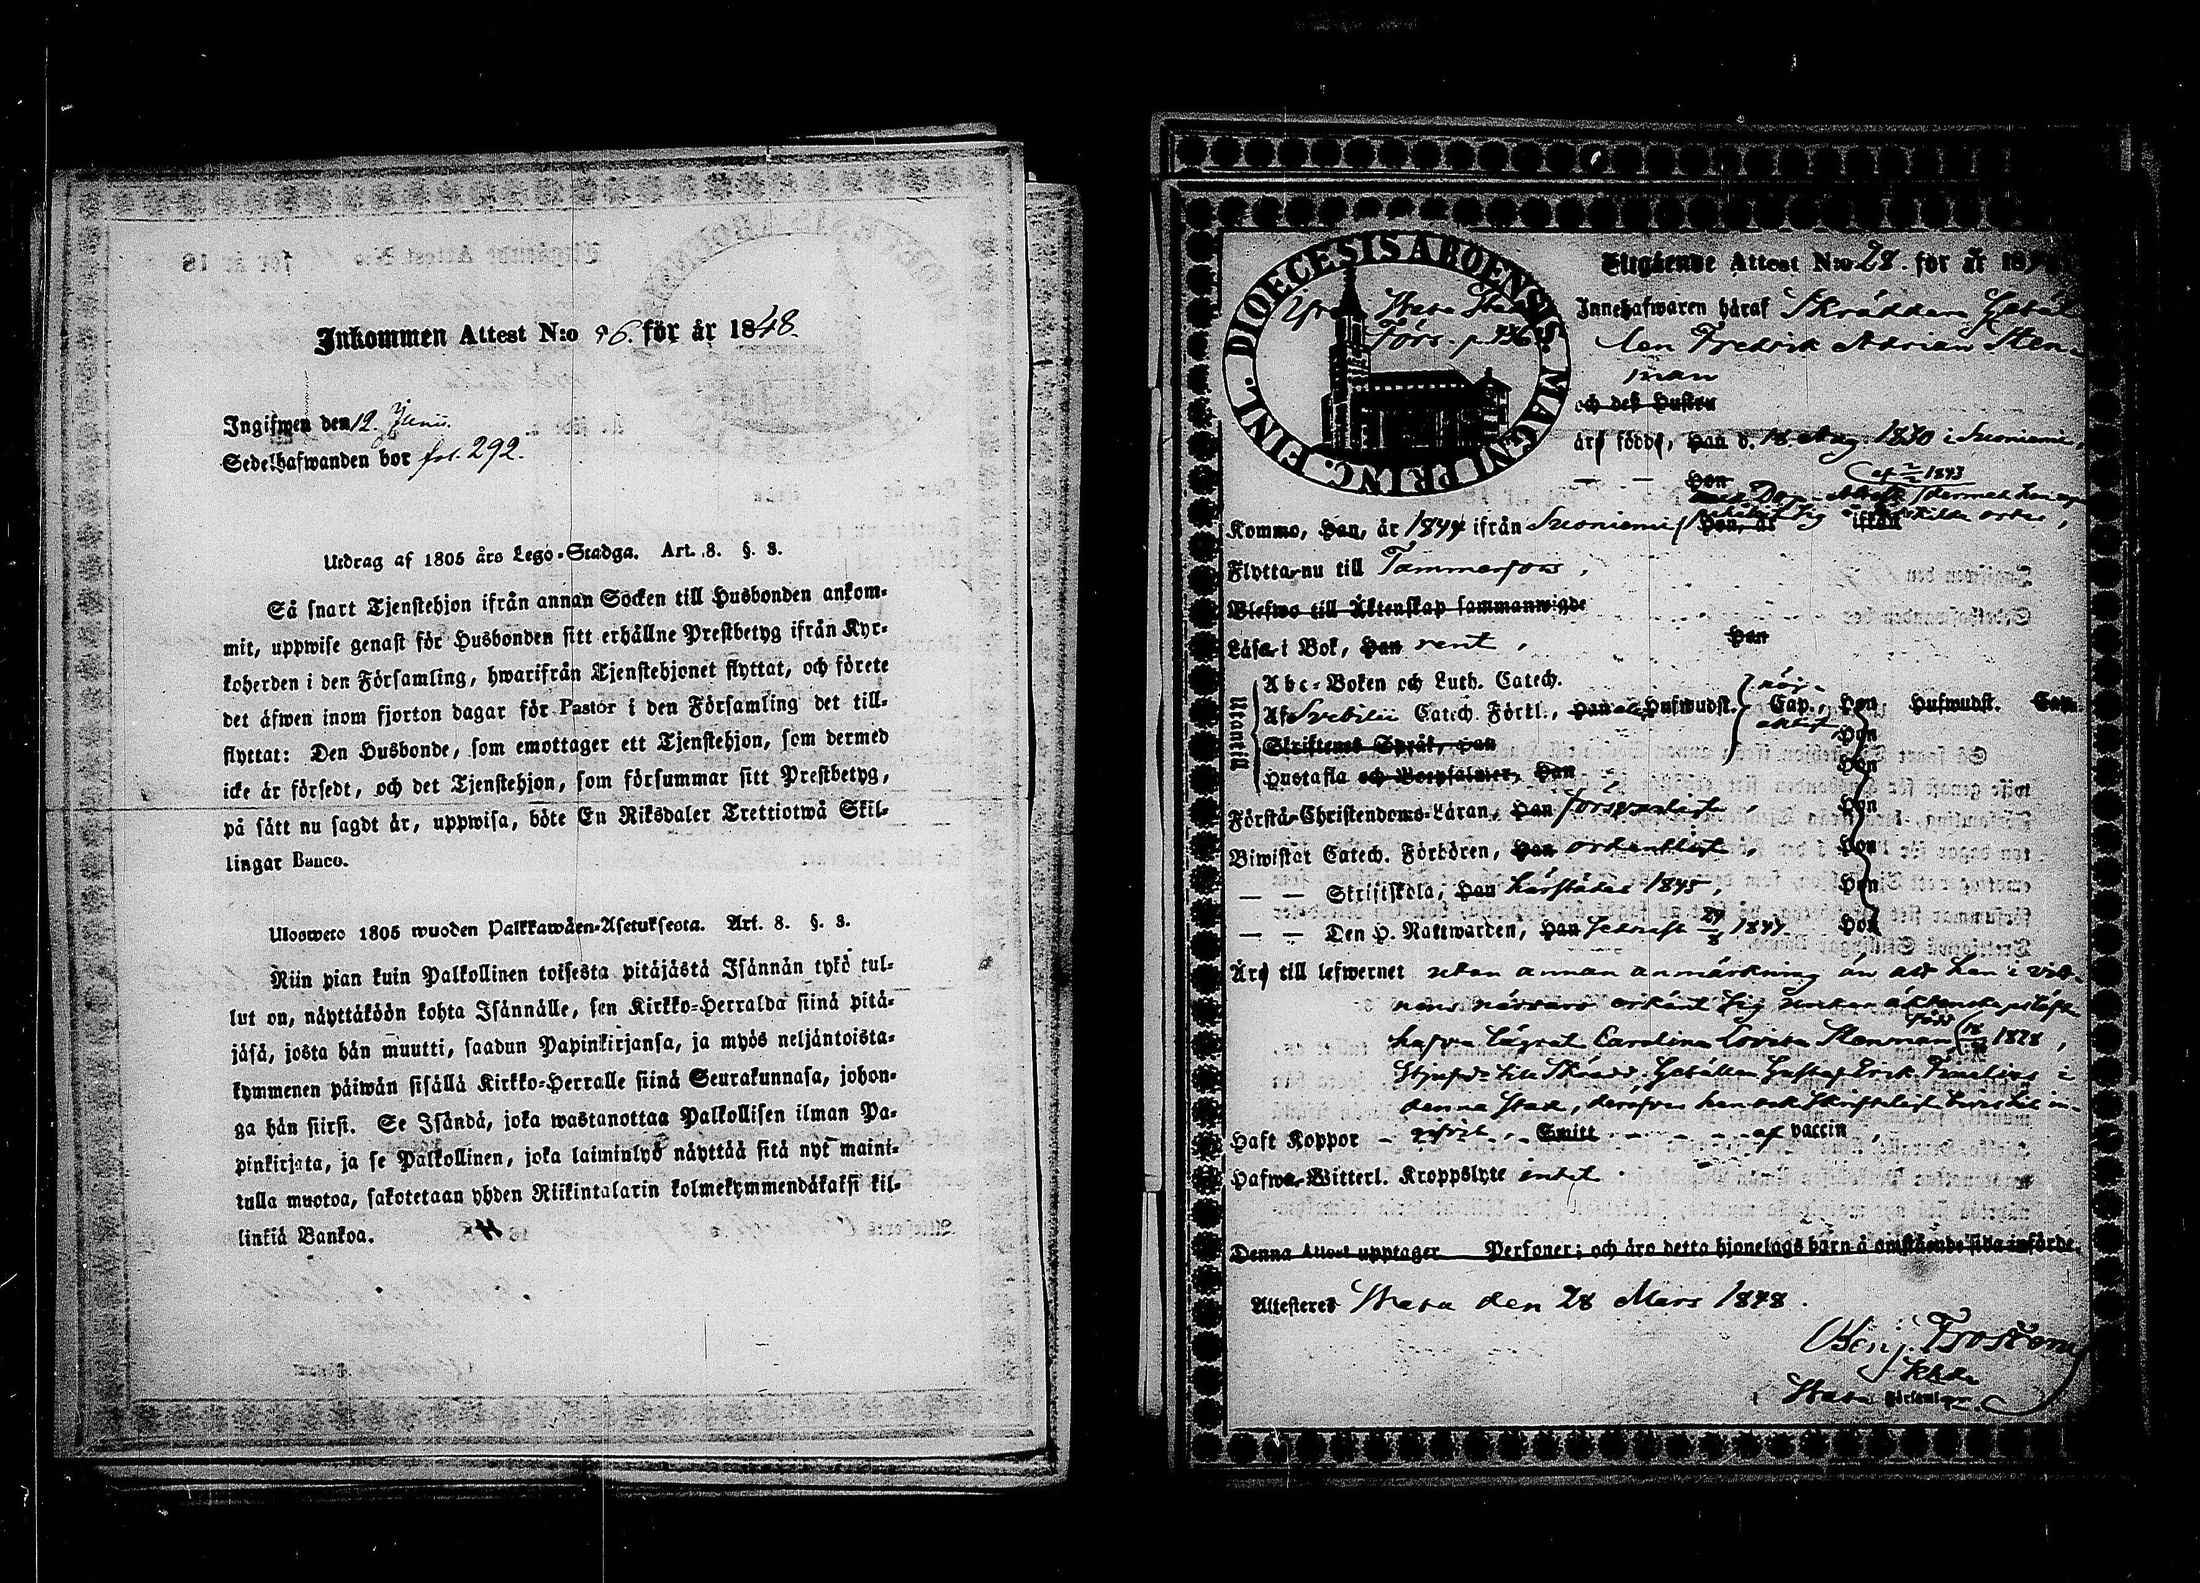 Inkommen Attest N:o 96. för år 1848.
Ingifwen den 12 Junii.
Sedelhafwanden bor fol. 292.
Utdrag af 1805 års Lego-Stadga. Art. 8. §. 3.
Så snart Tjenstehjon ifrån annan Socken till Husbonden ankom-
mit, uppwise genast för Husbonden sitt erhållne Prestbetyg ifrån Kyr-
koherden i den Församling, hwarifrån Tjenstehjonet flyttat, och förete
det äfwen inom fjorton dagar för Pastor i den Församling det till-
flyttat: Den Husbonde, som emottager ett Tjenstehjon, som dermed
icke är försedt, och det Tjenstehjon, som försummar sitt Prestbetyg,
på sätt nu sagdt är, uppwisa, böte En Riksdaler Trettiotwå Skil-
lingar Banco.
Ulosweto 1805 wuoden Palkkawäen-Asetuksesta. Art. 8. §. 3.
Niin pian kuin Palkollinen toisesta pitäjästä Isännän tykö tul-
lut on, näyttäköön kohta Isännälle, sen Kirkko-Herralda siinä pitä-
jäsä, josta hän muutti, saadun Papinkirjansa, ja myös neljäntoista-
kymmenen päiwän sisällä Kirkko-Herralle siinä Seurakunnasa, johon-
ga hän siirsi. Se Isändä, joka wastanottaa Palkollisen ilman Pa-
pinkirjata, ja se Palkollinen, joka laiminlyö näyttää sitä nyt maini-
tulla muotoa, sakotetaan yhden Riikintalarin kolmekymmendäkaksi kil-
linkiä Bankoa.
DIOECESIS ABOENSIS. MAGNI PRINC. FINL.
Förs. p.
Utgående Attest N:o 28. för år 18
Innehafwaren häraf Skräddare Gesäl
len Fredrik Adrian Sten-
man
och deß Hustru
äro född, Han d. 18 Aug. 1830 i Suoniemi,
— — Hon
af 1843
Komme, Han, år 1844 ifrån Suoniemi Hon, år ifrån
Flytta nu till Tammerfors,
Blefwo till Äktenskap sammanwigde
Läsa i Bok, Han rent, Hon
Utantill
Abc-Boken och Luth. Catech.
Af Svebilii Catech. Förkl., Han alla Hufwudst. Cap., Hon Hufwudst. Cap.
nöj-
aktigt, Hon
Skriftenes Språk, Han
Hustafla och Botpsalmer, Han Hon
Förstå Christendoms-Läran, Han försvarligt, Hon
Biwistat Catech. Förhören, Han ordentligt, Hon
— — Skriftskola, Han härstädes 1845, Hon
— — Den H. Nattwarden, Han 29/8 1847. Hon
Äro till lefwernet utan annan anmärkning än att han i vitt-
nens närvaro erkänt sig under äktenskapslöfte
hafva lägrat Carolina Lovisa Stenman, född 1828,
till Skrädd. Gesällen Gustaf Erik i
denna stad,
Haft Koppor — — Smitt — — — af vaccin,
Hafwa Witterl. Kroppslyte intet.
Denna Attest upptager Personer; och äro detta hjonelags barn å omstående sida införde.
Attesteres den 28 Mars 1848.
Benj. Froström
Församling.